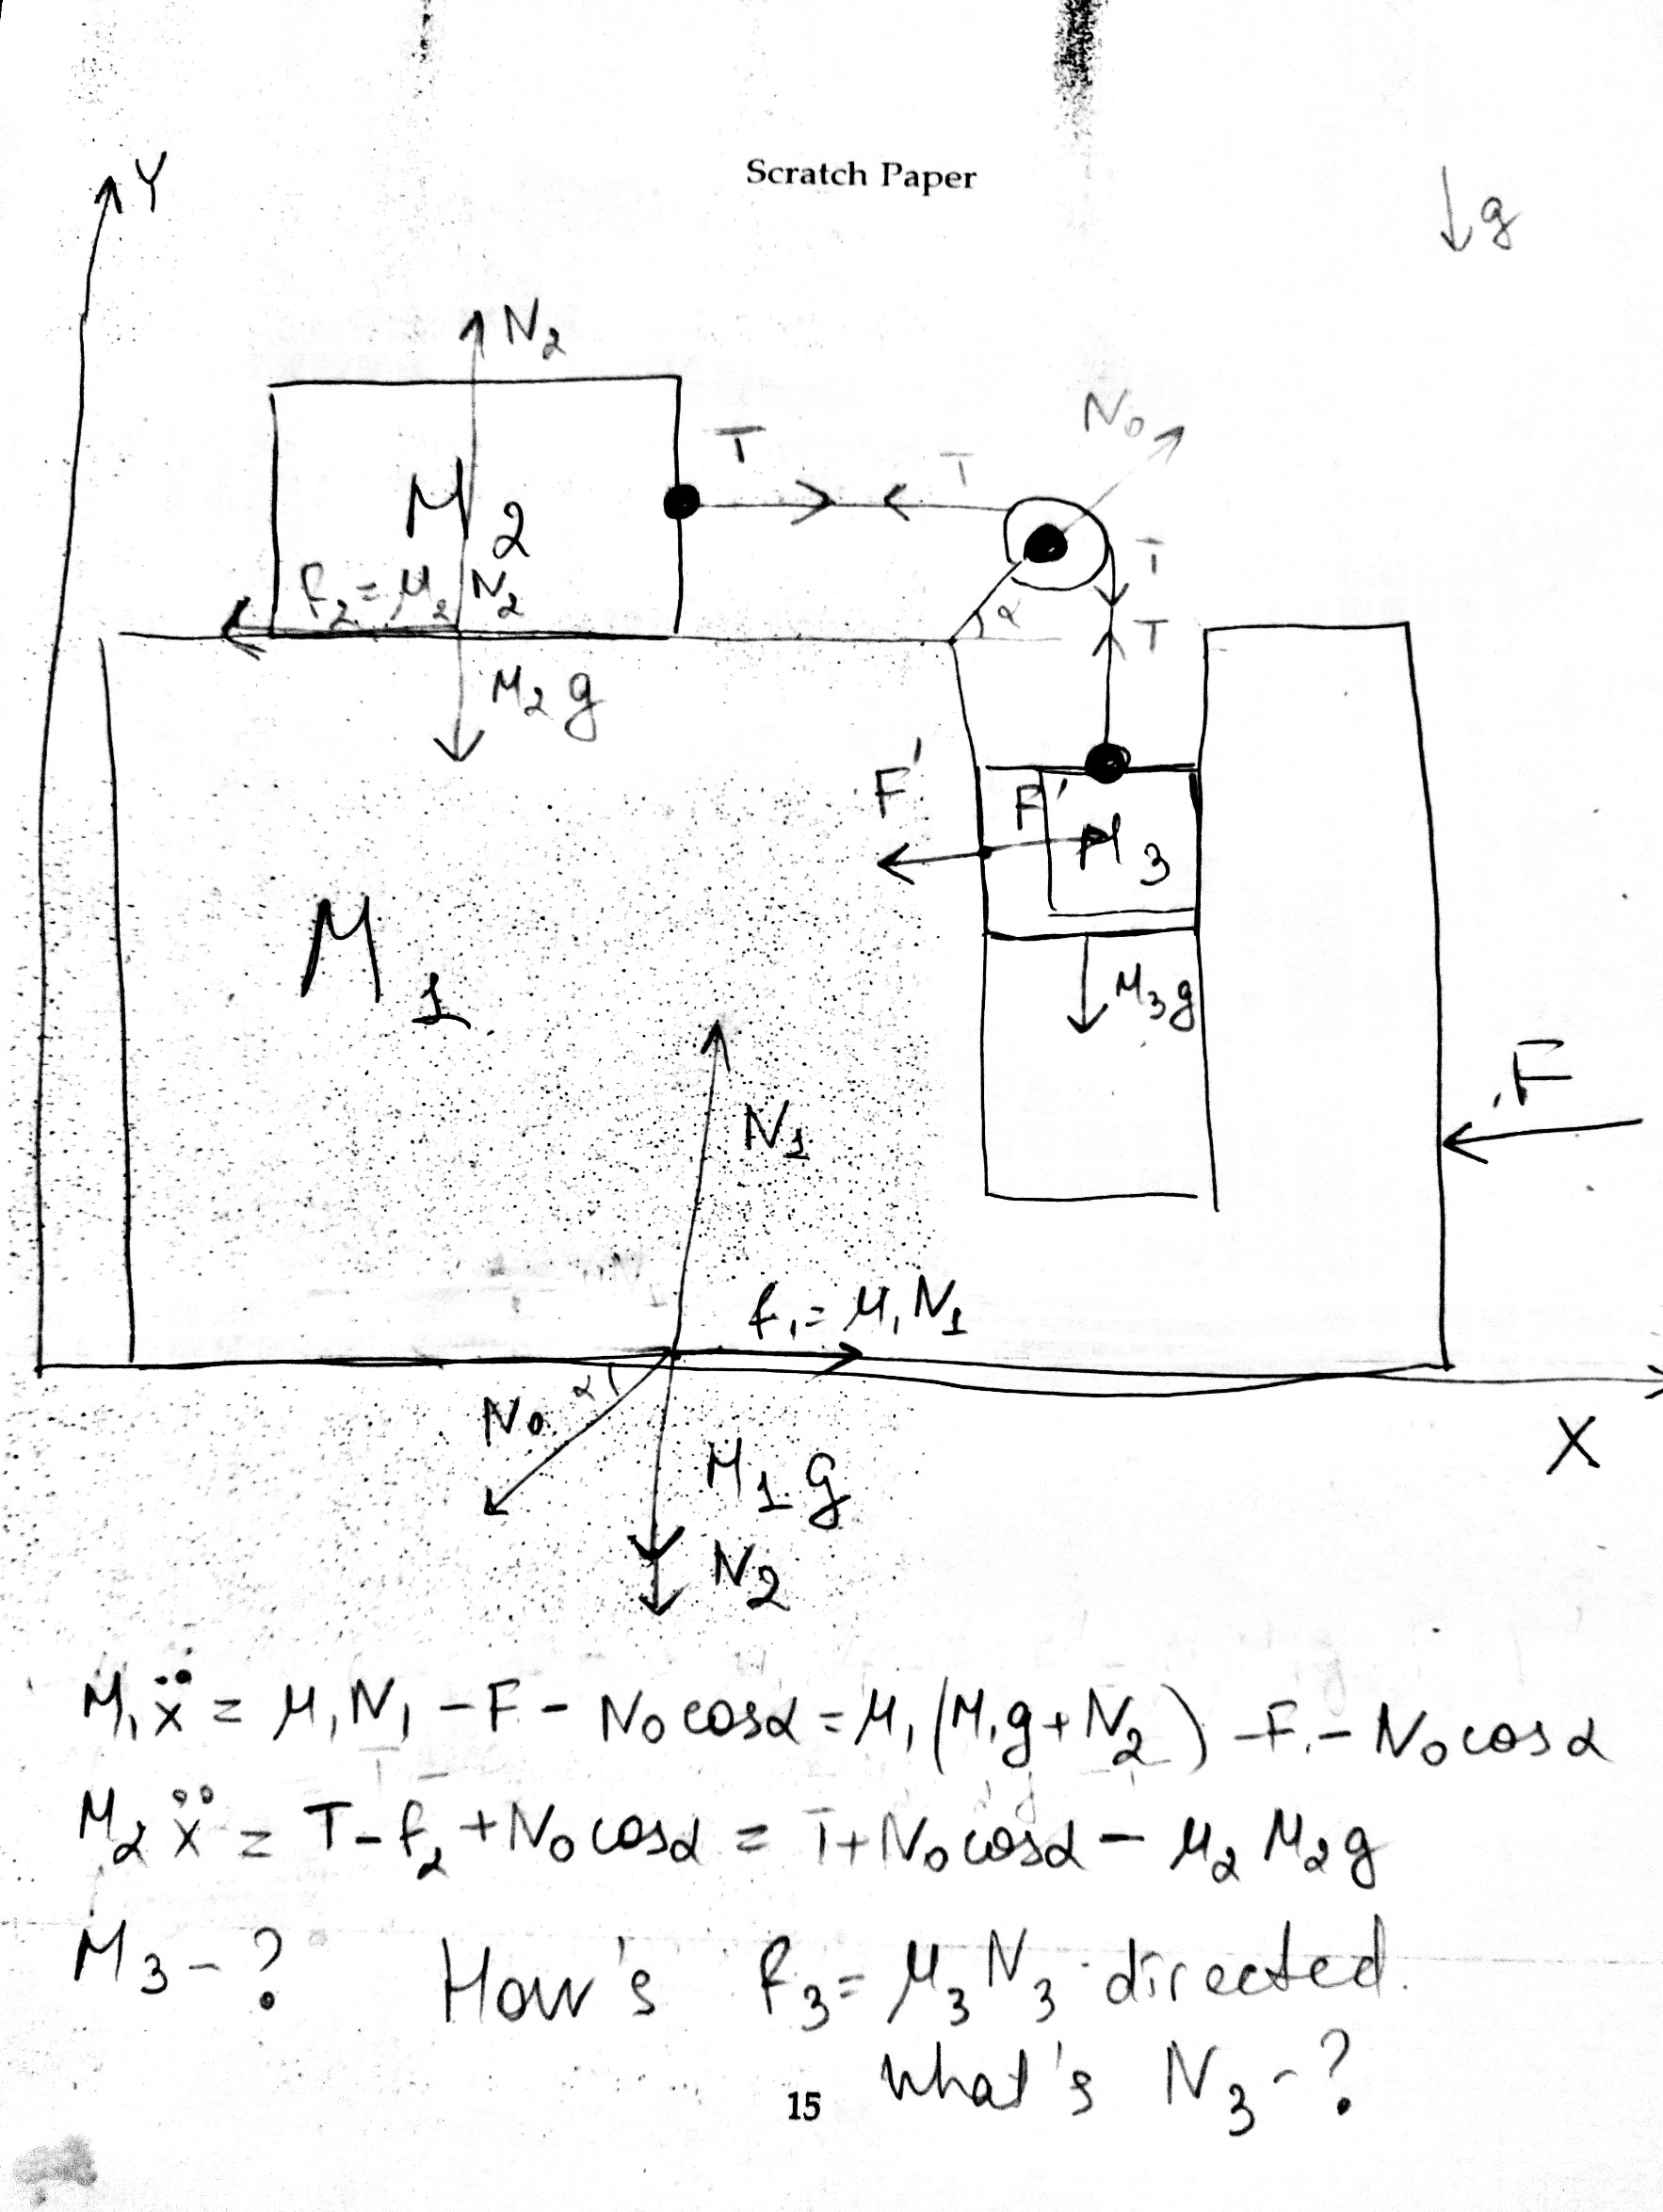 Scratch Paper
Y
↓ g
N₂
N₀
T
T
M₂
T
f₂ = μ₂ N₂
α
T
M₂ g
F'
F'
M₃
M₁
M₃g
F
N₁
f₁ = μ₁ N₁
α
N₀
X
M₁ g
N₂
M₁ẍ = μ₁N₁ - F - N₀ cosα = μ₁(M₁g + N₂) - F - N₀ cosα
M₂ẍ = T - f₂ + N₀ cosα = T + N₀ cosα - μ₂ M₂g
M₃ - ? How's f₃ = μ₃ N₃ directed.
what's N₃ - ?
15